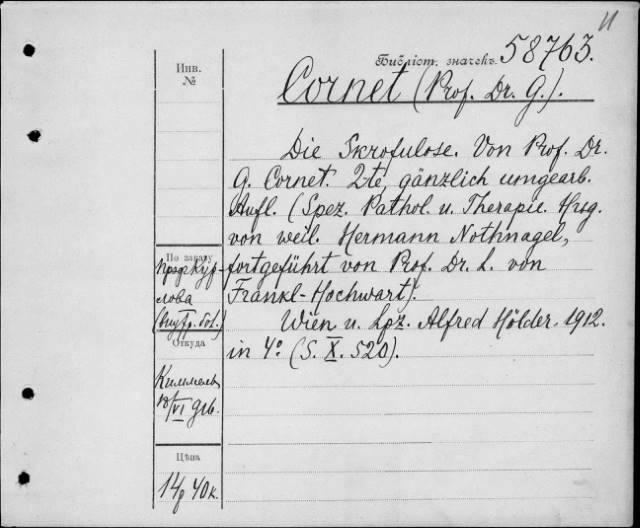 11
Библіот. значекъ. 58763.
Cornet (Prof. Dr. G.).
Инв.
№
Die Skrofulose. Von Prof. Dr.
G. Cornet. 2te, gänzlich umgearb.
Aufl. (Spez. Pathol. u. Therapie. Hrsg.
von weil. Hermann Nothnagel,
fortgeführt von Prof. Dr. L. von
Frankl-Hochwart).
Wien u. Lpz. Alfred Hölder. 1912.
in 4º (S. X. 520).
По заказу
проф Кур-
лова
(Внутр. бол.)
Откуда
Киммель
VI 912.
Цѣна
14р 40к.